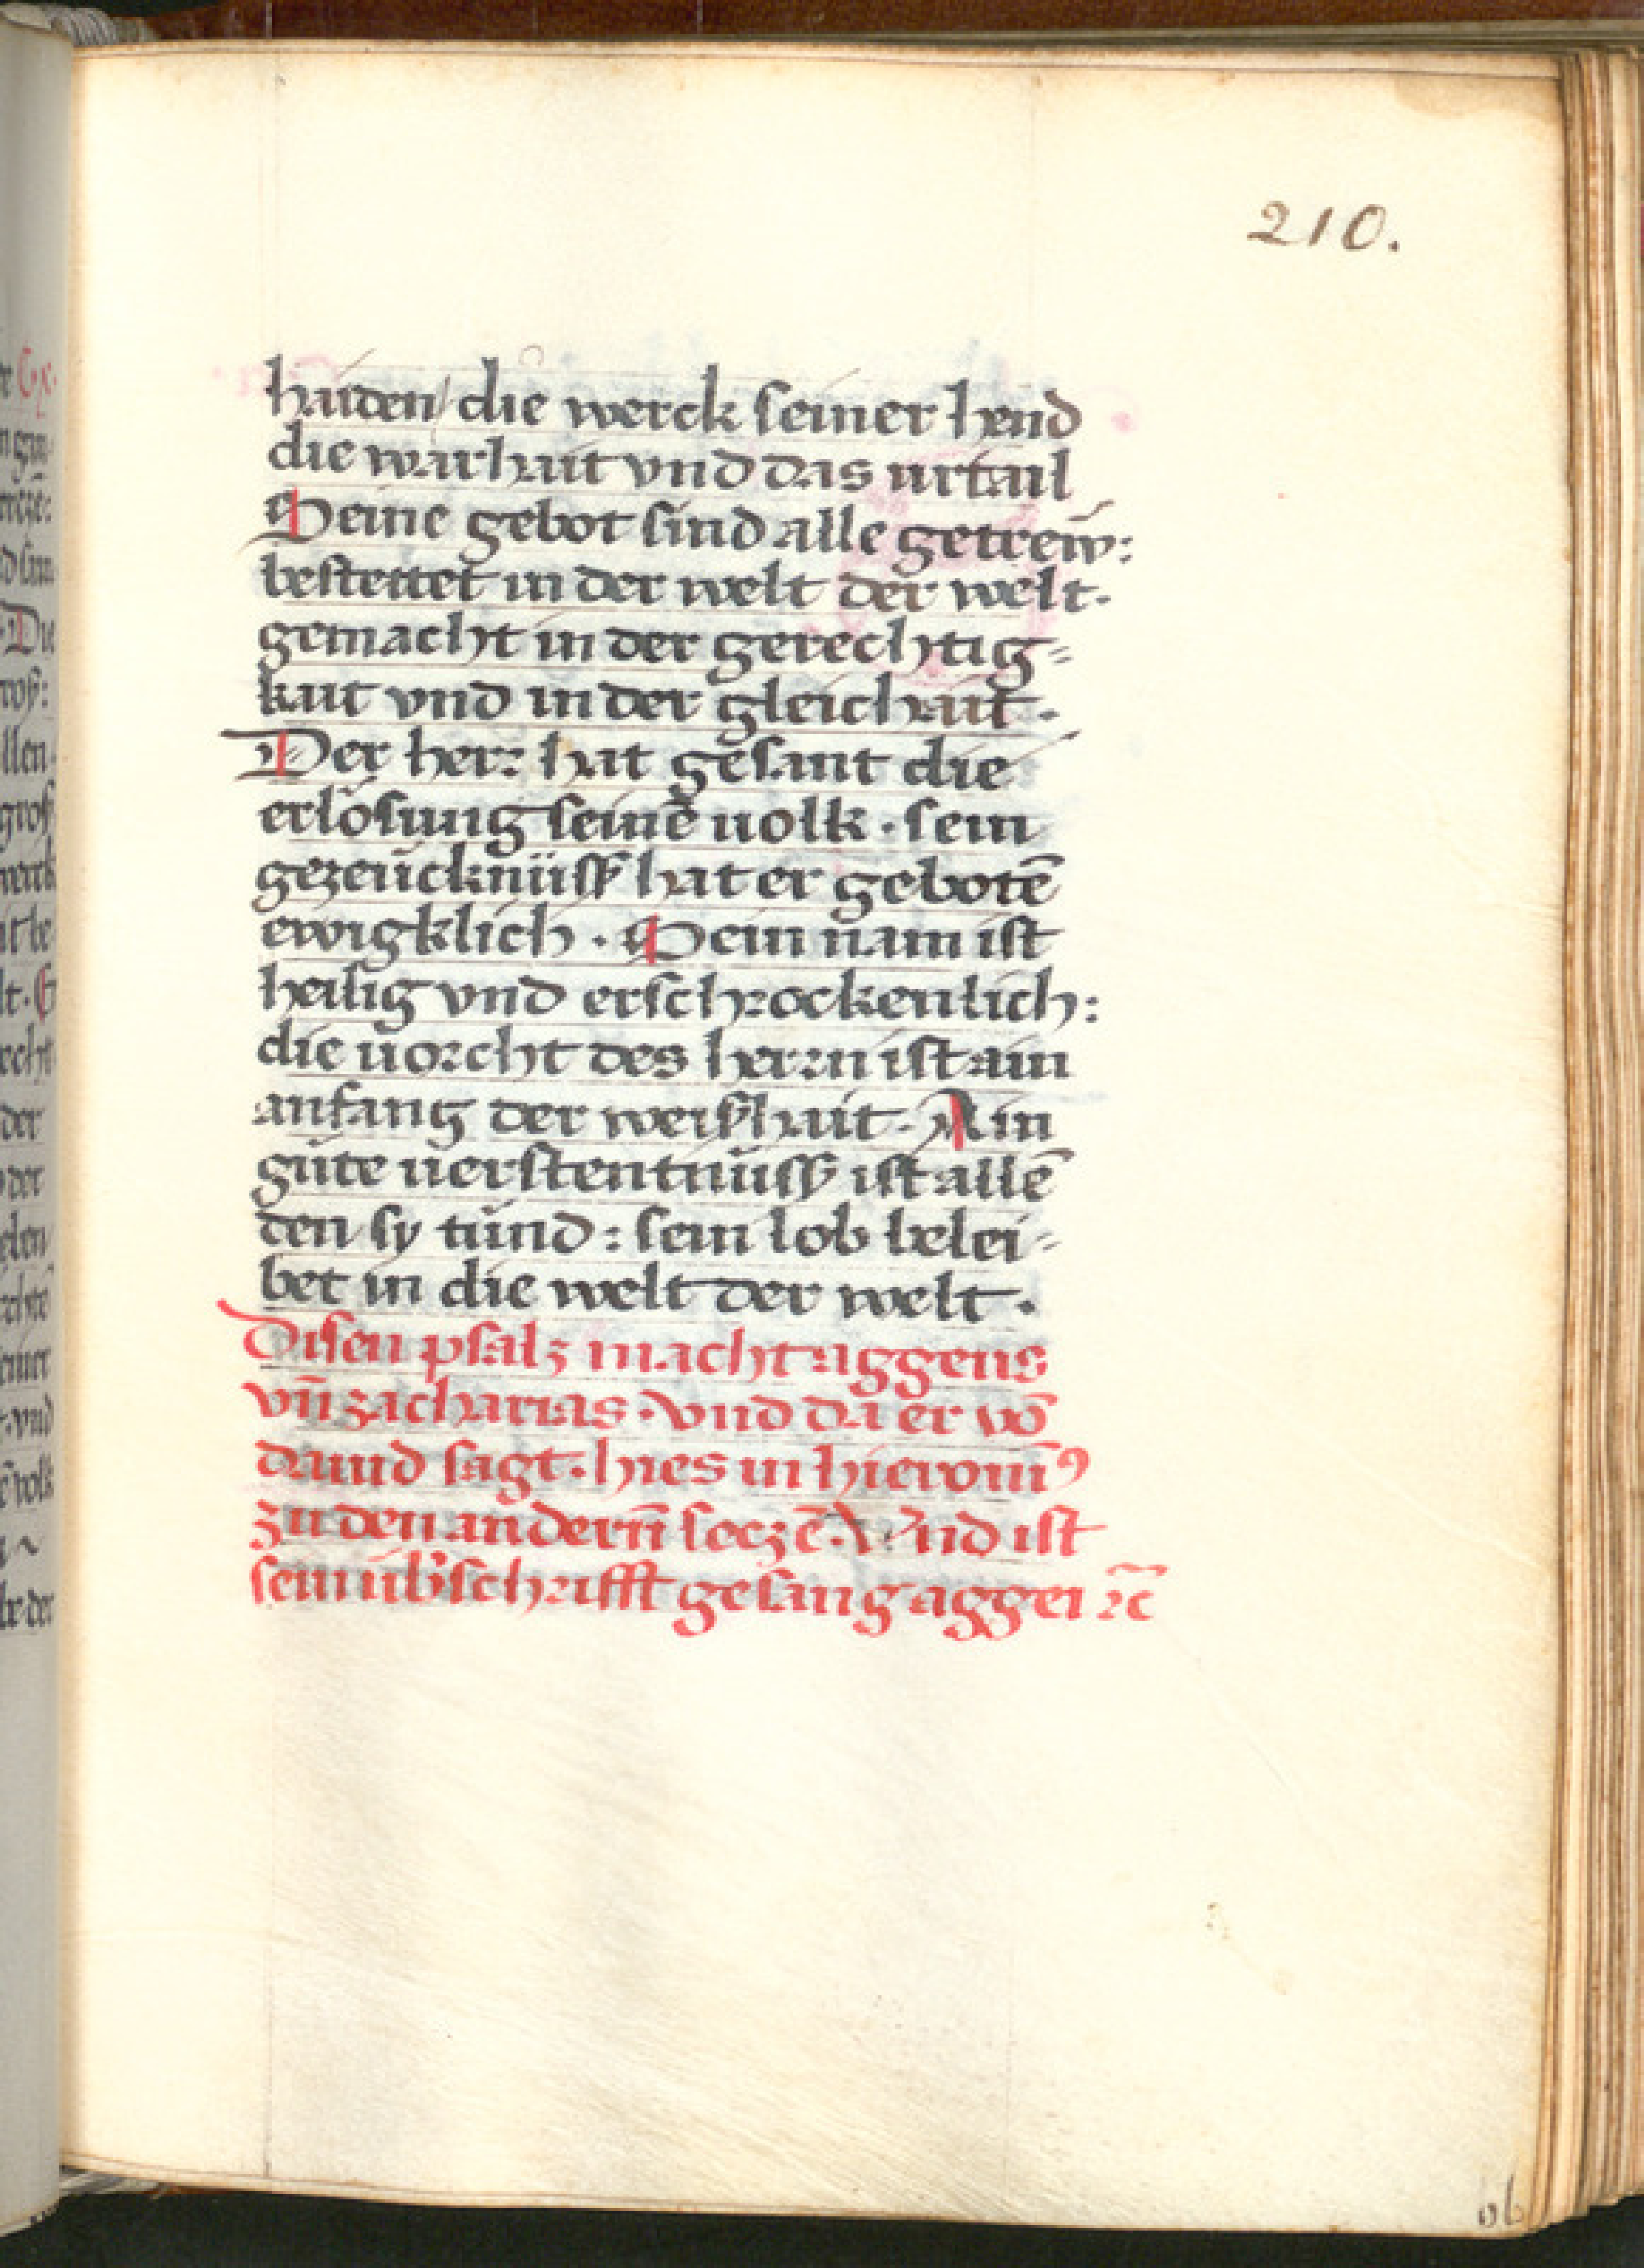 210.
haiden / die werck seiner hend
die warhait vnd das urtail
Seine gebot sind alle getreẅ:
bestettet in der welt der welt.
gemacht in der gerechtig⸗
kait vnd in der gleichait.
Der herr hat gesant die
erlösung seinē uolk · sein
gezeücknüss hat er gebotē
ewigklich · Sein nam ist
heilig vnd erschrockenlich:
die uorcht des herrn ist ain
anfang der weishait. Ain
gůte uerstentnüss ist allē
den sy tůnd: sein lob belei⸗
bet in die welt der welt.
Disen psalm macht aggeus
vn̄ zacharias · vnd da er vō
dauid sagt · hies in hieronim9
zu den andern̄ seczē. Vnd ist
sein übʼschrifft gesang aggei ⁊c̄